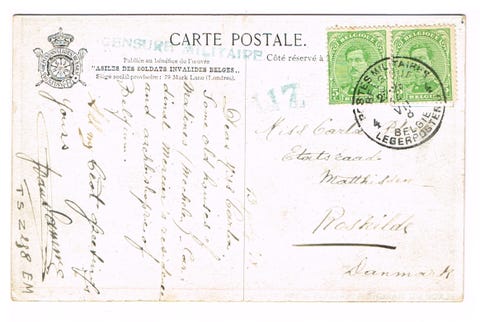 CARTE POSTALE.
CENSURE MILITAIRE
Publiée au bénéfice de l'œuvre
"ASILES DES SOLDATS INVALIDES BELGES."
Siège social provisoire : 29 Mark Lane (Londres).
Côté réservé à
BELGIQUE BELGIË
POSTES MILITAIRES
BELGIQUE
BELGIE
LEGERPOSTERIJ
4 4
117
Dear Miss Carla
Some old houses of
Malines (Mechelen) Car-
dinal Mercier's residence
and archbishopric of
Belgium.
All my best greetings
Yours
TS 2888 EM
Miss Carla
Etatsraad
Matthiesen
Roskilde
Danmark